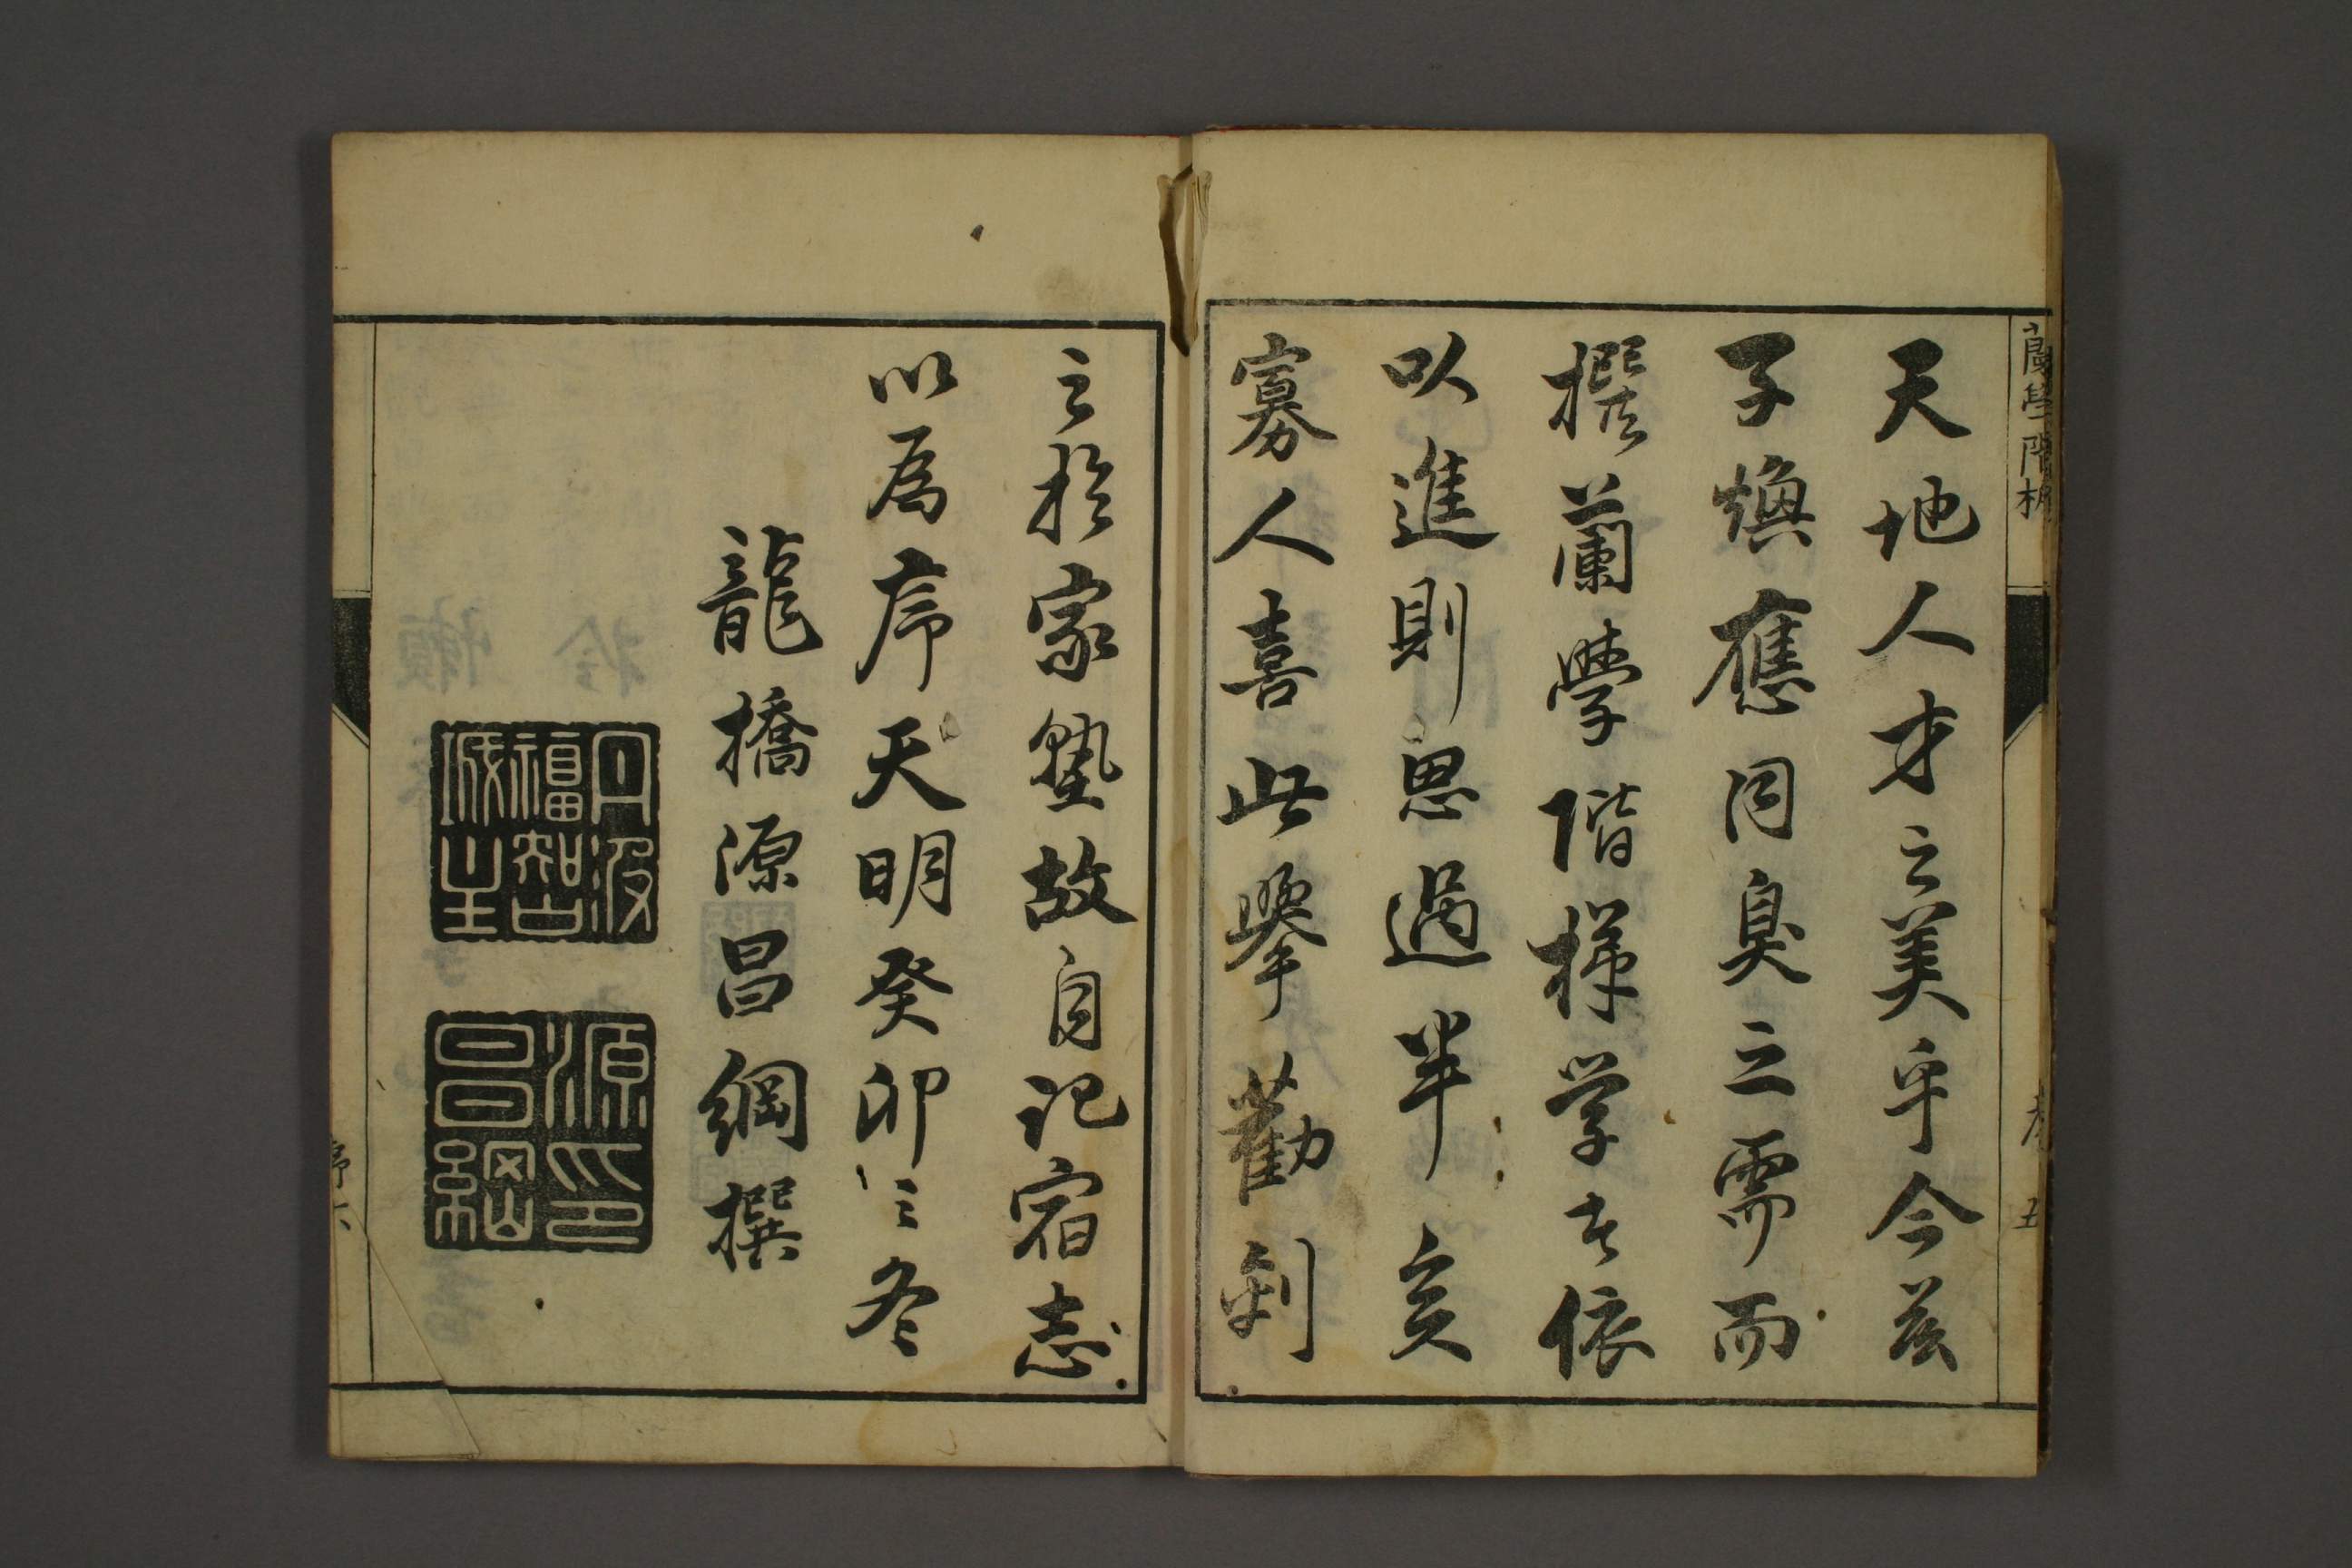 蘭學階梯
五
天地人才之美乎今茲
子煥應同臭之需而
撰蘭學階梯学者依
以進則思過半矣
寡人喜此擧勸刻
之於家塾故自記宿志
以為序天明癸卯之冬
龍橋源昌綱撰
丹波福智城主
源印昌綱
序六